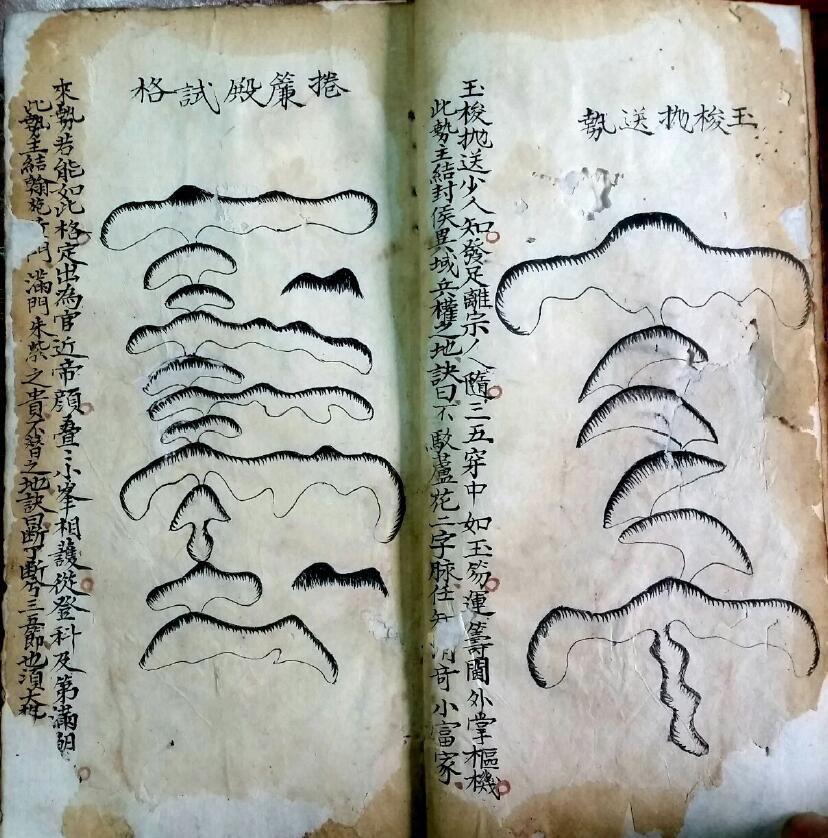 玉梭抛送勢
玉梭抛送少人知發足離宗人隨三五穿中如玉笏運籌閫外掌樞機
此勢主結封侯異域兵權之地訣曰不敢蘆花二字脉任小富家
捲簾殿試格
來勢若能如此格定出為官近帝顔叠〻小峯相護從登科及第滿朝
此勢主結翰苑門滿門朱紫之貴不替之地訣曰斷了斷兮三五節也須大